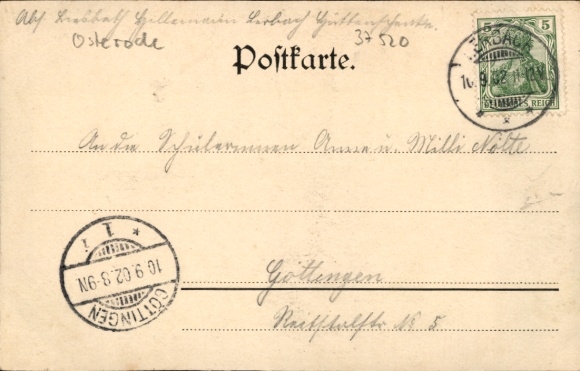 Abs. Liesbeth Hillemann Lerbach Hüttenschenke.
Osterode 37520
Postkarte.
5
LERBACH
10.9.02 11-12V
DEUTSCHES REICH
An die Schülerinnen Anna u. Milli Nolte
Göttingen
Reitstallstr № 5
* 1 i
10.9.02.8-9N
GÖTTINGEN